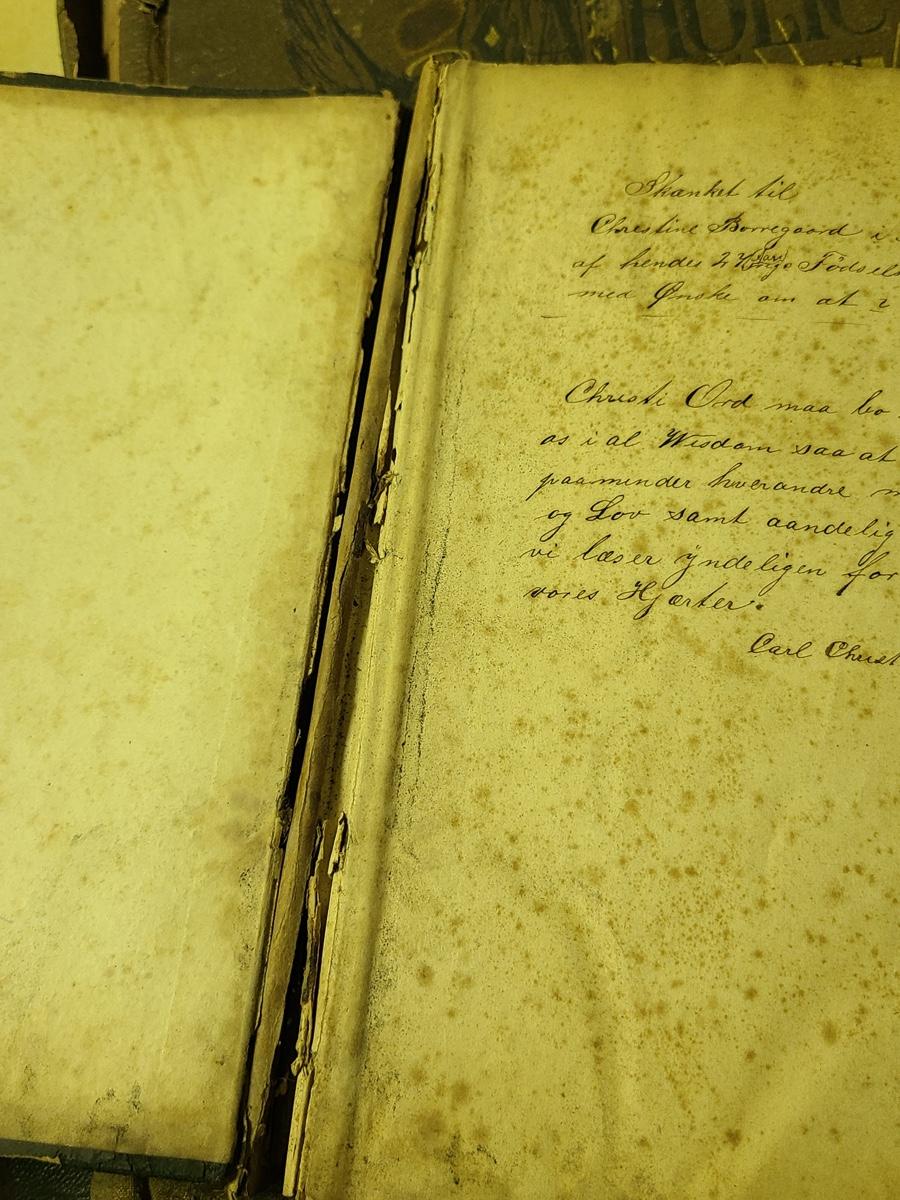 CATHOLIC
Skænket til
Christine Borregaard i
af hendes Födsels
med Ønske om at
Christi Ord maa bo
os i al Wisdom saa at
paaminder hverandre
og Lov samt aandelig
vi læser yndeligen for
vores Hjærter.
Carl Christ